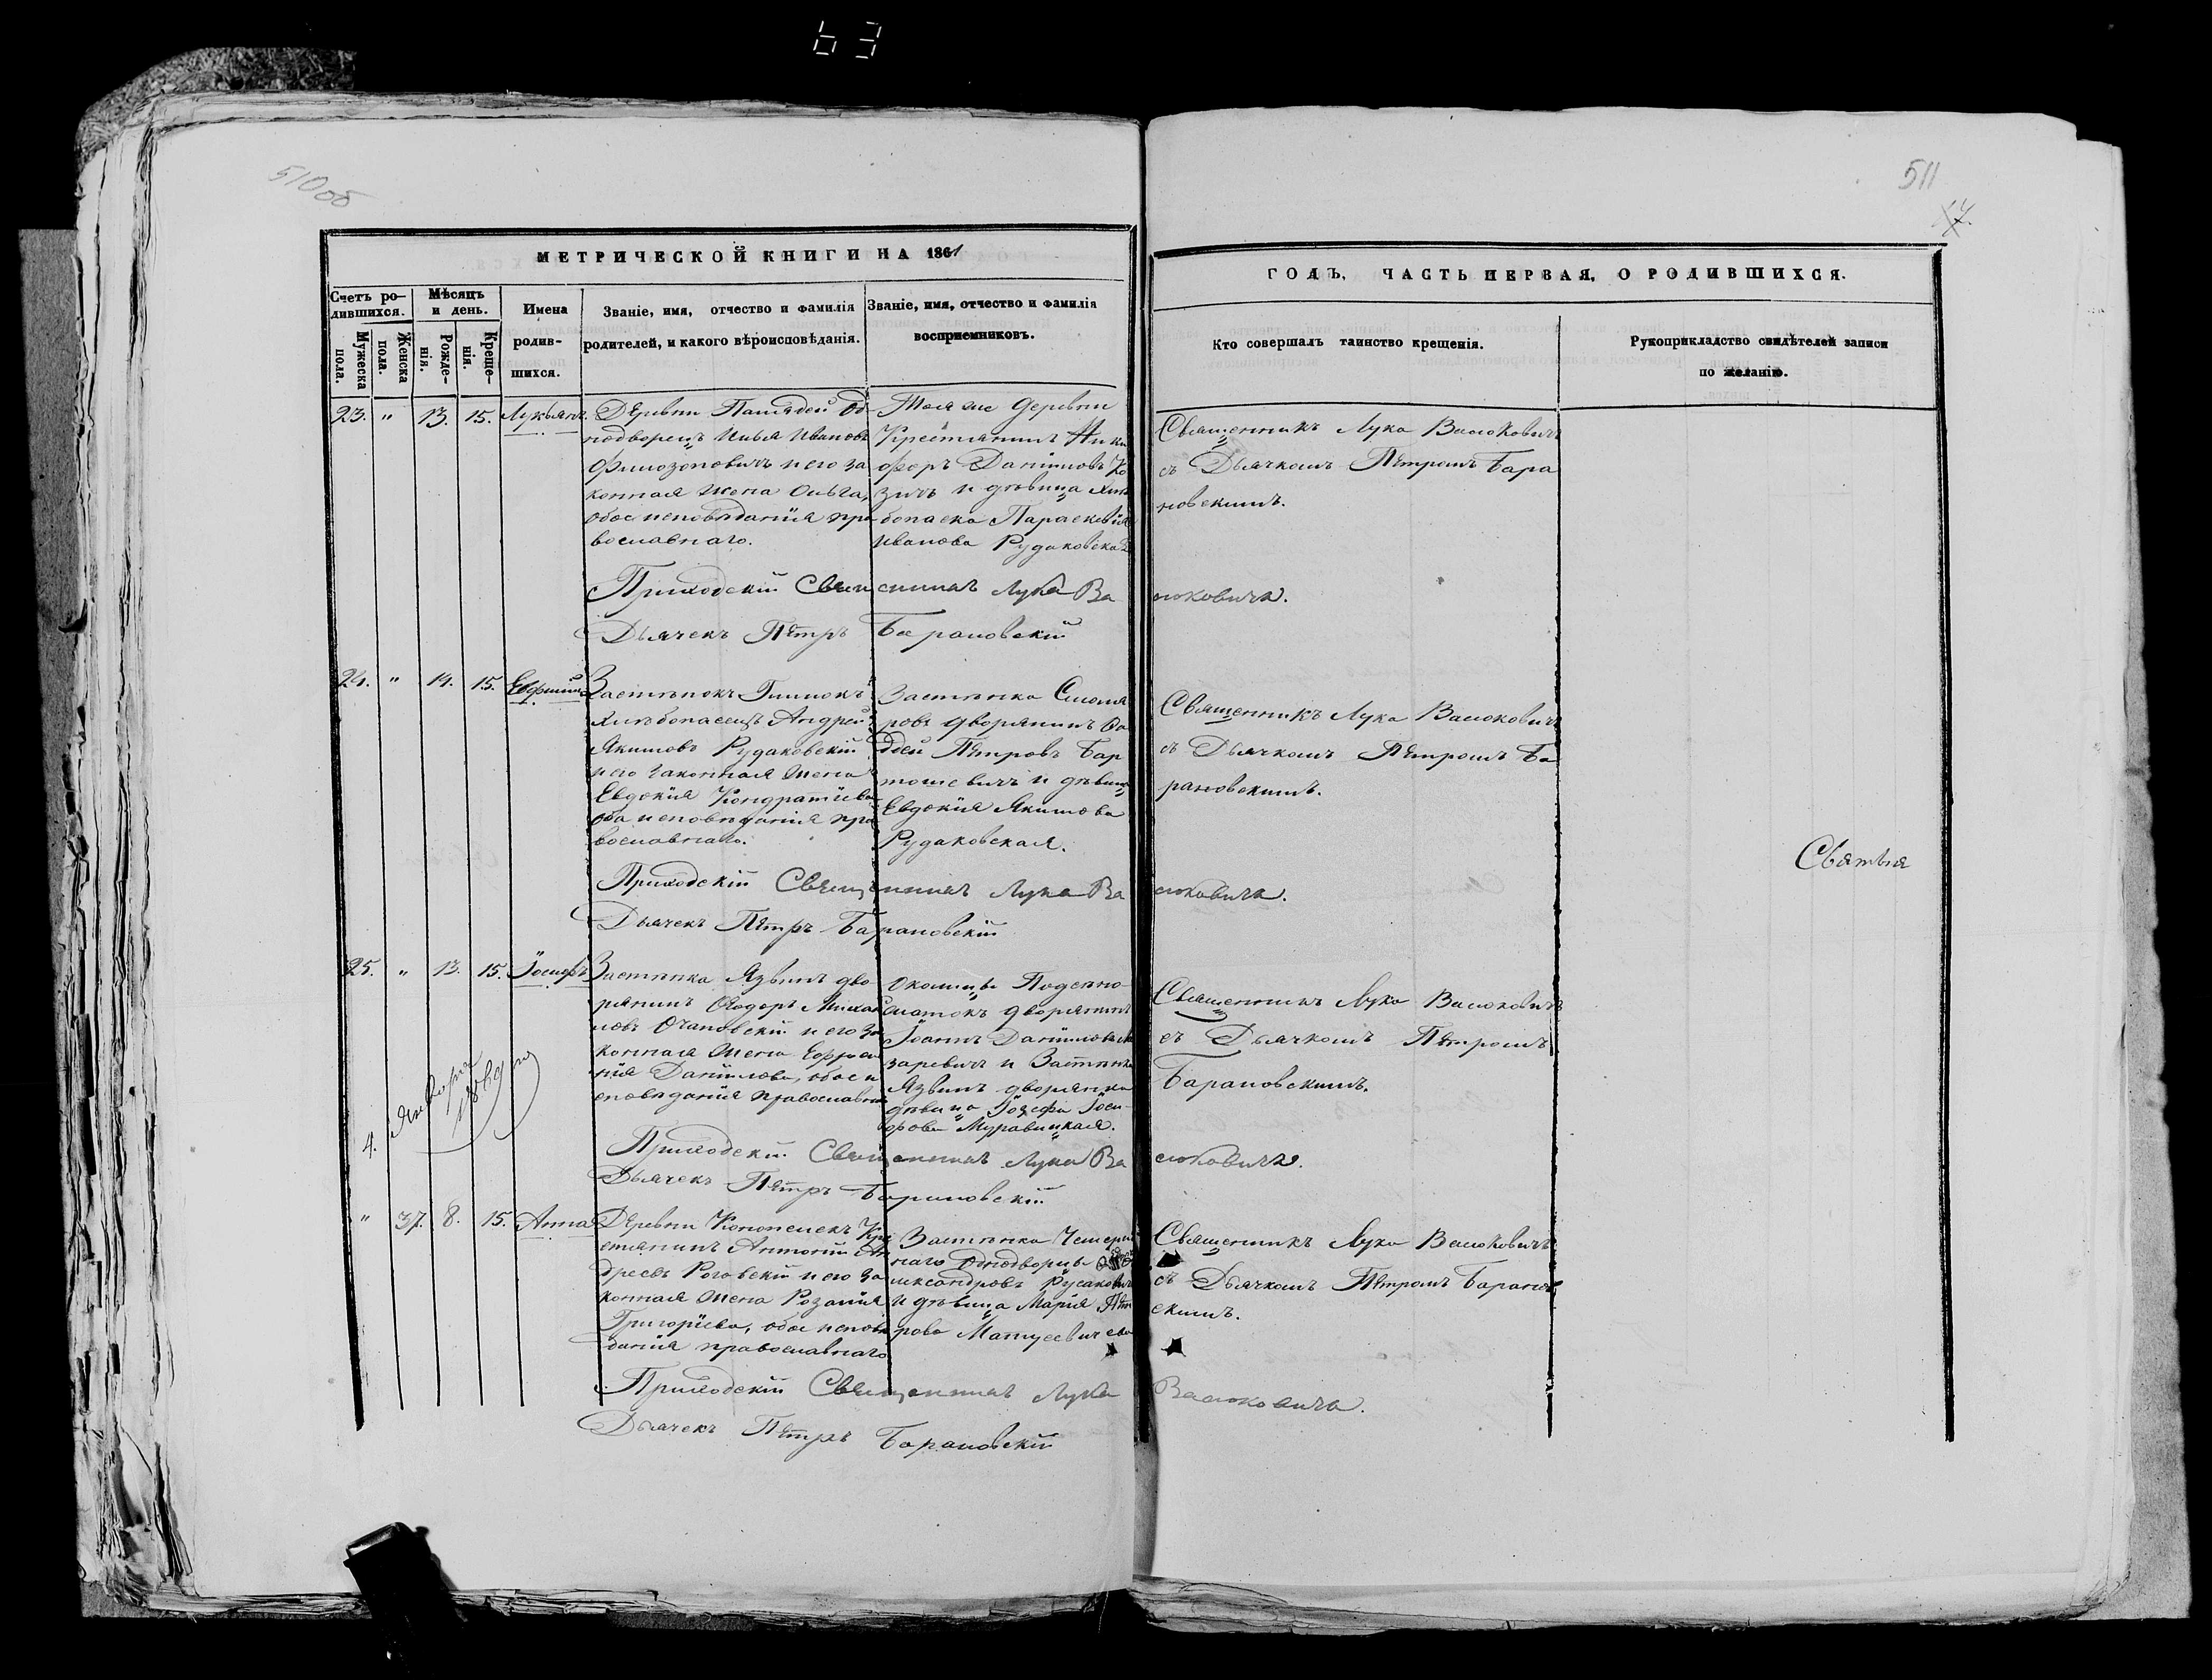 63
510об
511
17.
МЕТРИЧЕСКОЙ КНИГИ НА 1861
ГОДЪ, ЧАСТЬ ПЕРВАЯ, О РОДИВШИХСЯ.
Счетъ ро-
дившихся.
Мужеска
пола.
Женска
пола.
Мѣсяцъ
и день.
Рожде-
нія.
Креще-
нія.
Имена
родив-
шихся.
Званіе, имя, отчество и фамилія
родителей, и какого вѣроисповѣданія.
Званіе, имя, отчество и фамилія
воспріемниковъ.
Кто совершалъ таинство крещенія.
Рукоприкладство свидѣтелей записи
по желанію.
23. " 13. 15. Лукьянъ.
Деревни Од-
нодворецъ Илья Ивановъ
Филозоповичъ и его за
конная жена Ольга,
обое исповѣданія пра
вославнаго.
Тоя же деревни
Крестьянинъ Ники
форъ Даніиловъ Ко
зичъ и дѣвица хлѣ
бопаска Параскевія
Иванова Рудаковская
Священникъ Лука Васюковичъ
съ Дьячкомъ Петромъ Бара
новскимъ.
Приходскій Священникъ Лука Ва сюковичъ.
Дьячекъ Петръ Барановскій
24. " 14. 15. Евфимій
Застѣнокъ
хлѣбопашецъ Андрей
Якимовъ Рудаковскій
и его законная жена
Евдокія Кондратіева
оба исповѣданія пра
вославнаго.
Застѣнка
ровъ дворянинъ Фа
дей Петровъ Бар
тошевичъ и дѣвица
Евдокія Якимова
Рудаковская.
Священникъ Лука Васюковичъ
съ Дьячкомъ Петромъ Ба
рановскимъ.
Приходскій Священникъ Лука Ва сюковичъ.
Дьячекъ Петръ Барановскій
25. " 13. 15. Іосифъ
Застѣнка Язвинъ дво
рянинъ Ѳеодоръ Михаи
ловъ Очаповскій и его за
конная жена
Даніилова, обое и
сповѣданія православна
Околицы
дворянинъ
Іоаннъ Даніиловъ
заревичъ и Застѣнка
Язвинъ дворянка
дѣвица Іозефа Іоси-
фова Муравицкая.
Священникъ Лука Васюковичъ
съ Дьячкомъ Петромъ
Барановскимъ.
4. Января
Приходскій Священникъ Лука Ва сюковичъ.
Дьячекъ Петръ Барановскій
" 37. 8. 15. Анна
Деревни Кононелекъ Кре
стьянинъ Антоній Ан
дреевъ Роговскій и его за
конная жена Розалія
Григоріева, обое исповѣ
данія православнаго
Застѣнка
наго Однодворцы
лександровъ Русакович
и дѣвица Марія Пет
рова Матусевичева
Священникъ Лука Васюковичъ
съ Дьячкомъ Петромъ Баранов
скимъ.
Приходскій Священникъ Лука Васюковичъ.
Дьячекъ Петръ Барановскій